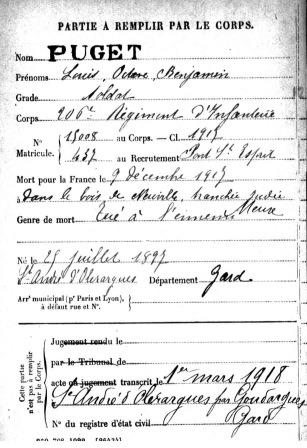 PARTIE À REMPLIR PAR LE CORPS.
Nom PUGET
Prénoms Louis, Octave, Benjamin
Grade Soldat
Corps 206e Régiment d'Infanterie
N° 15008 au Corps. — Cl. 1917
Matricule. 437 au Recrutement Pont St Esprit
Mort pour la France le 9 décembre 1917
dans le bois de Neuville, tranchée
Meuse
Genre de mort Tué à l'ennemi
Né le 25 juillet 1897
St André d'Olerargues Département Gard
Arrt municipal (pr Paris et Lyon),
à défaut rue et N°.
Cette partie
n'est pas à remplir
par le Corps.
Jugement rendu le
par le Tribunal de
acte ou jugement transcrit le 1er mars 1918
St André d'Olerargues par Goudargues
Gard
N° du registre d'état civil